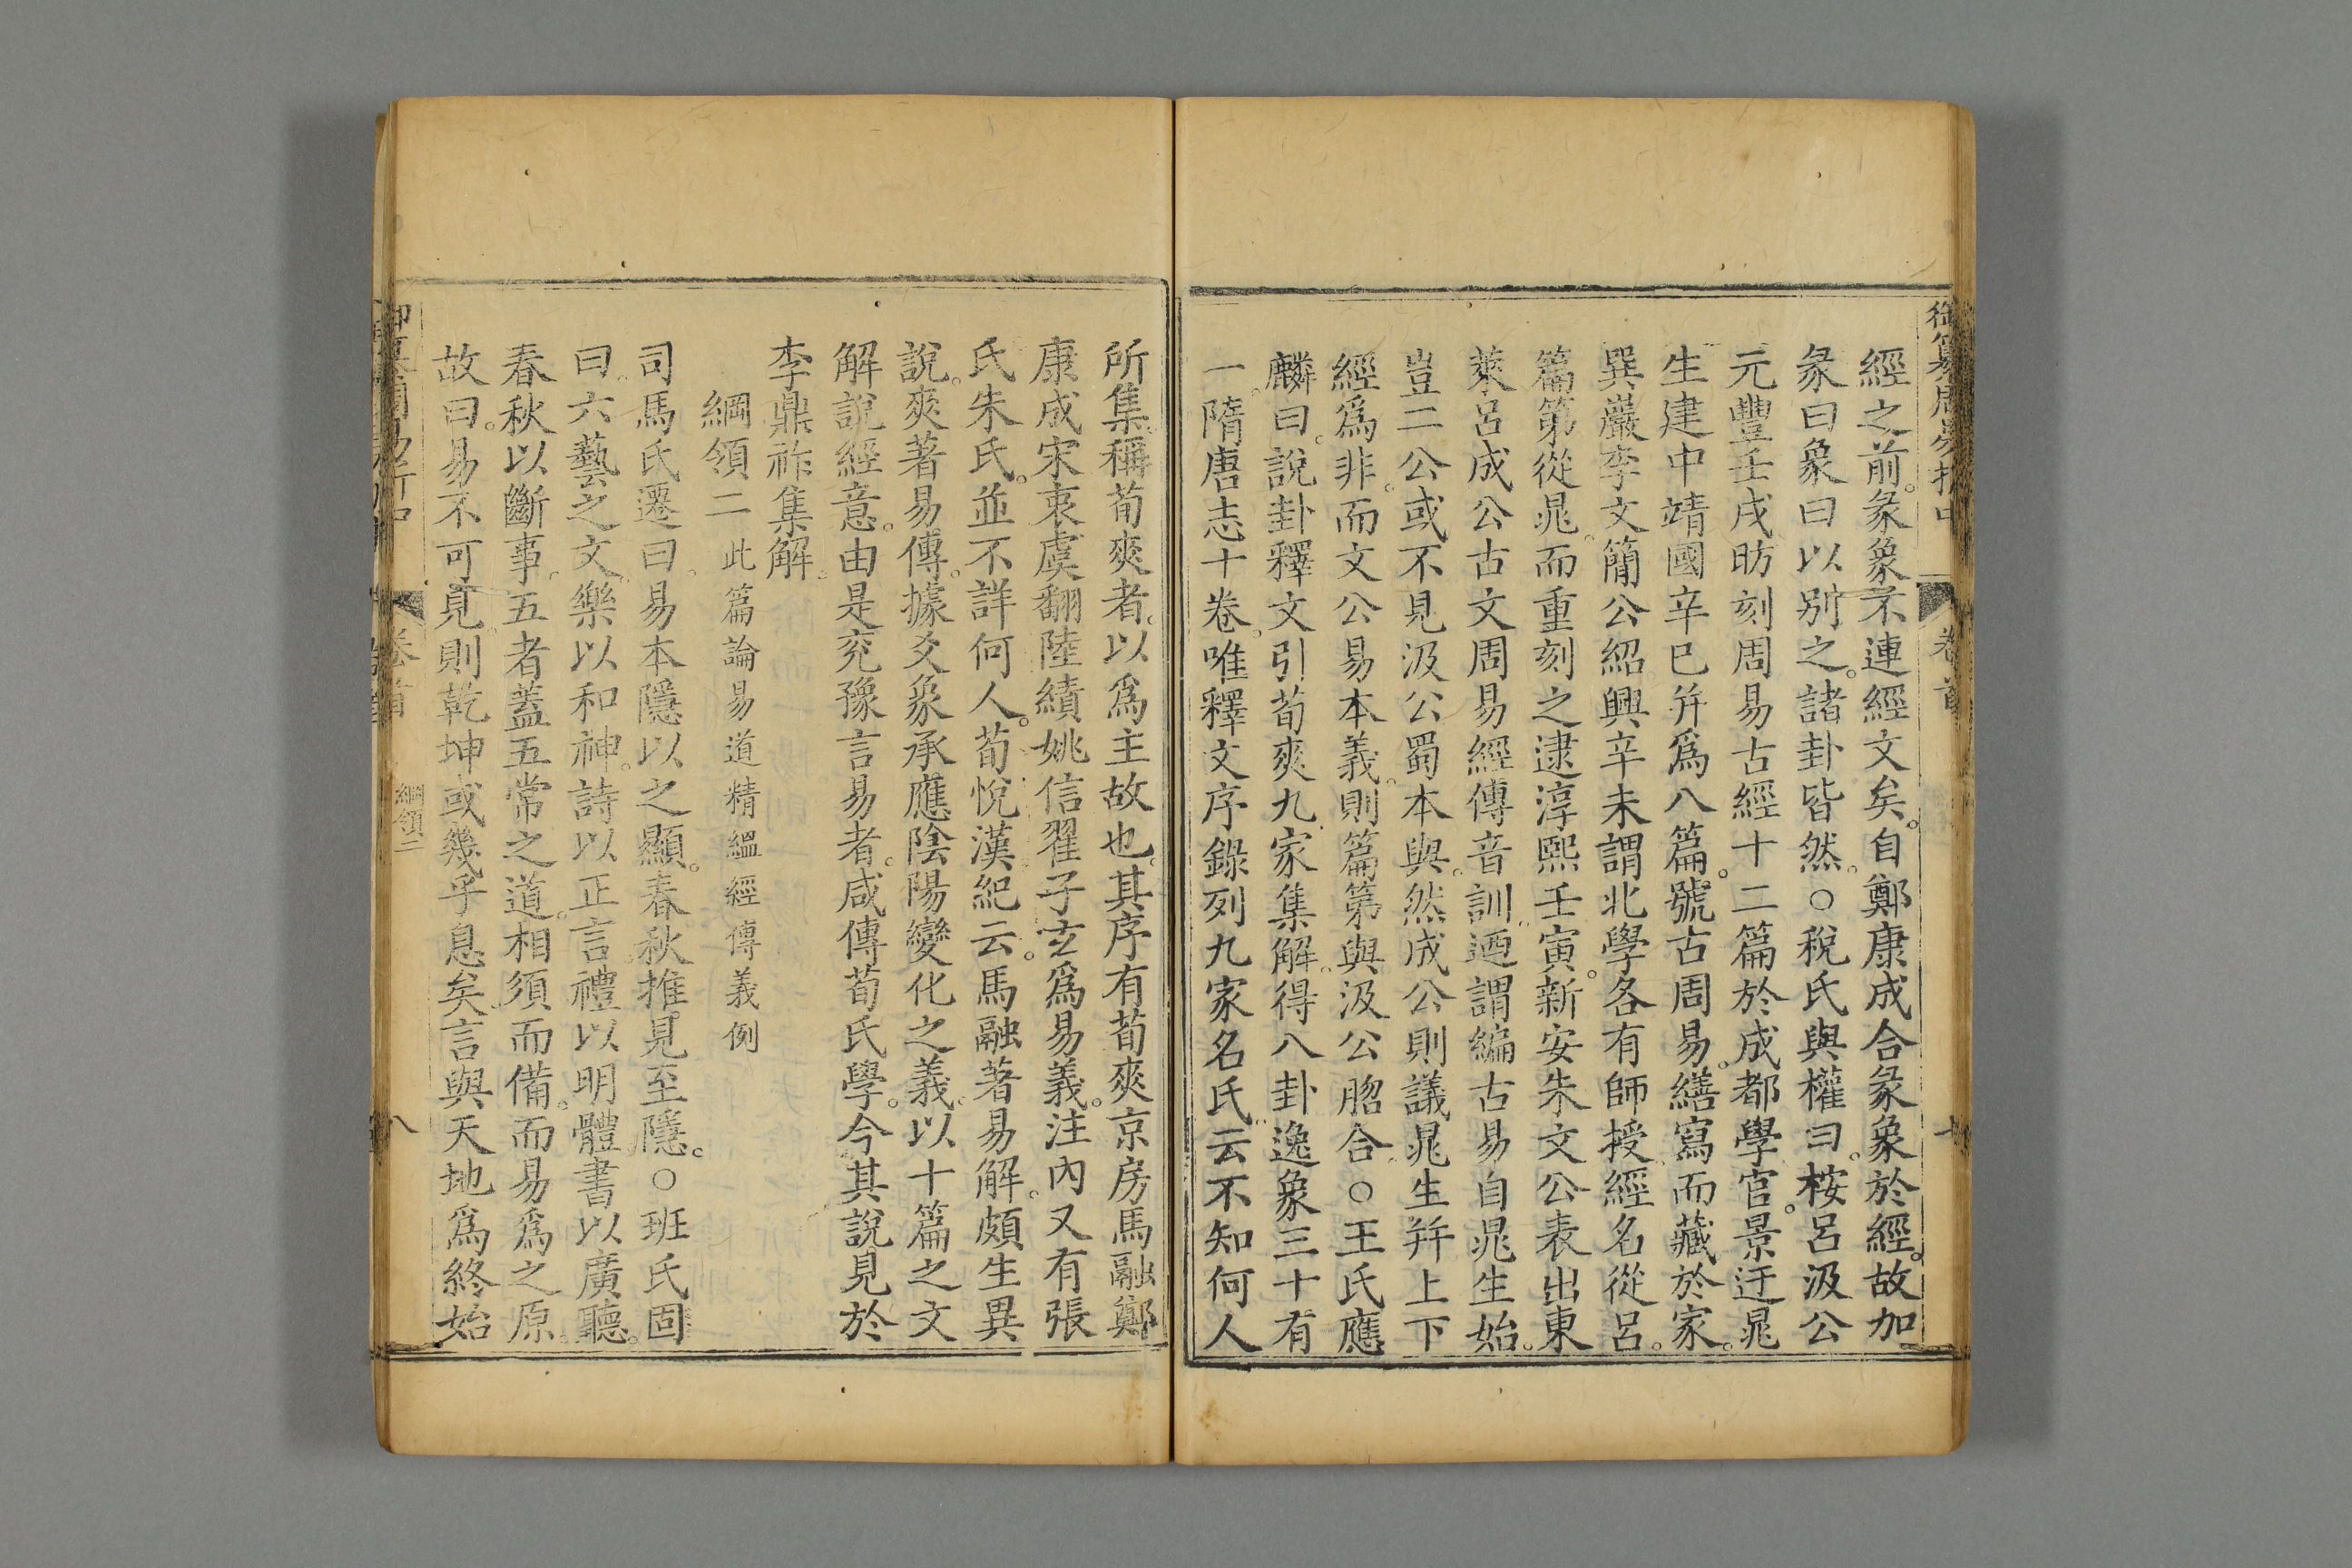 御纂周易折中
卷首
經之前。彖象不連經文矣。自鄭康成合彖象於經。故加
彖曰象曰以別之。諸卦皆然。○稅氏與權曰。桉呂汲公
元豐壬戌昉刻周易古經十二篇於成都學官。景迂晁
生建中靖國辛巳并爲八篇。號古周易。繕寫而藏於家。
巽巖李文簡公紹興辛未謂北學各有師授。經名從呂。
篇第從晁。而重刻之。逮淳熙壬寅。新安朱文公表出東
萊呂成公古文周易經傳音訓。迺謂編古易自晁生始。
豈二公或不見汲公蜀本與。然成公則議晁生并上下
經爲非。而文公易本義。則篇第與汲公脗合。○王氏應
麟曰。說卦釋文引荀爽九家集解。得八卦逸象三十有
一。隋唐志十卷。唯釋文序錄列九家名氏。云不知何人
所集。稱荀爽者。以爲主故也。其序有荀爽京房馬融鄭
康成宋衷虞翻陸績姚信翟子玄爲易義。注內又有張
氏朱氏。並不詳何人。荀悅漢紀云。馬融著易解。頗生異
說。爽著易傳。據爻象承應陰陽變化之義。以十篇之文
解說經意。由是兗豫言易者。咸傳荀氏學。今其說見於
李鼎祚集解。
綱領二 此篇論易道精縕經傳義例
司馬氏遷曰。易本隱以之顯。春秋推見至隱。○班氏固
曰。六藝之文。樂以和神。詩以正言。禮以明體。書以廣聽。
春秋以斷事。五者蓋五常之道。相須而備。而易爲之原。
故曰。易不可見。則乾坤或幾乎息矣。言與天地爲終始
卷首
綱領二
八